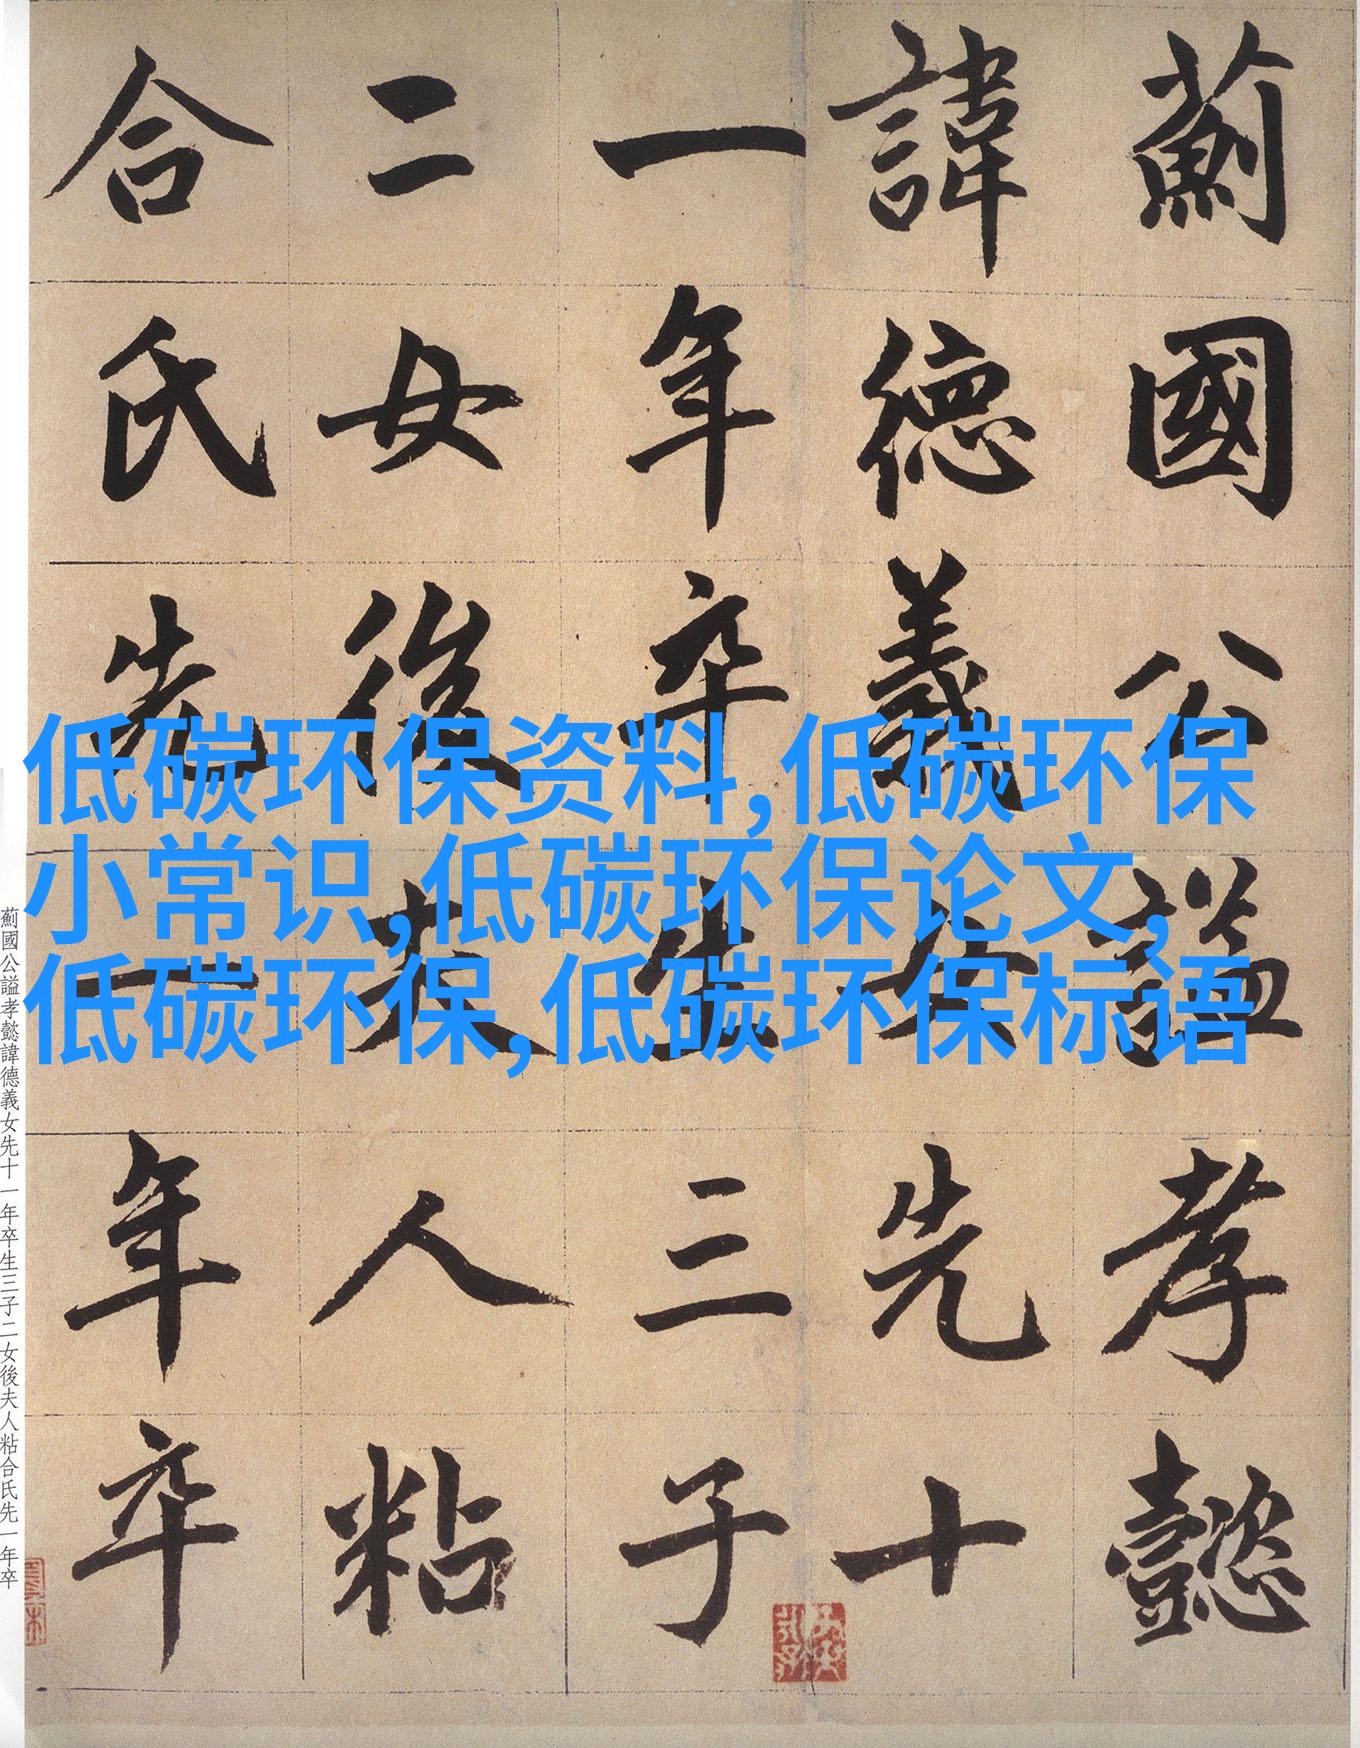 薊國公謚孝懿
諱德義女先十
一年卒生三子
二女後夫人粘
合氏先一年卒
低碳环保资料,低碳环保
小常识,低碳环保论文,
低碳环保,低碳环保标语
薊國公謚孝懿諱德義女先十一年卒生三子二女後夫人粘合氏先一年卒